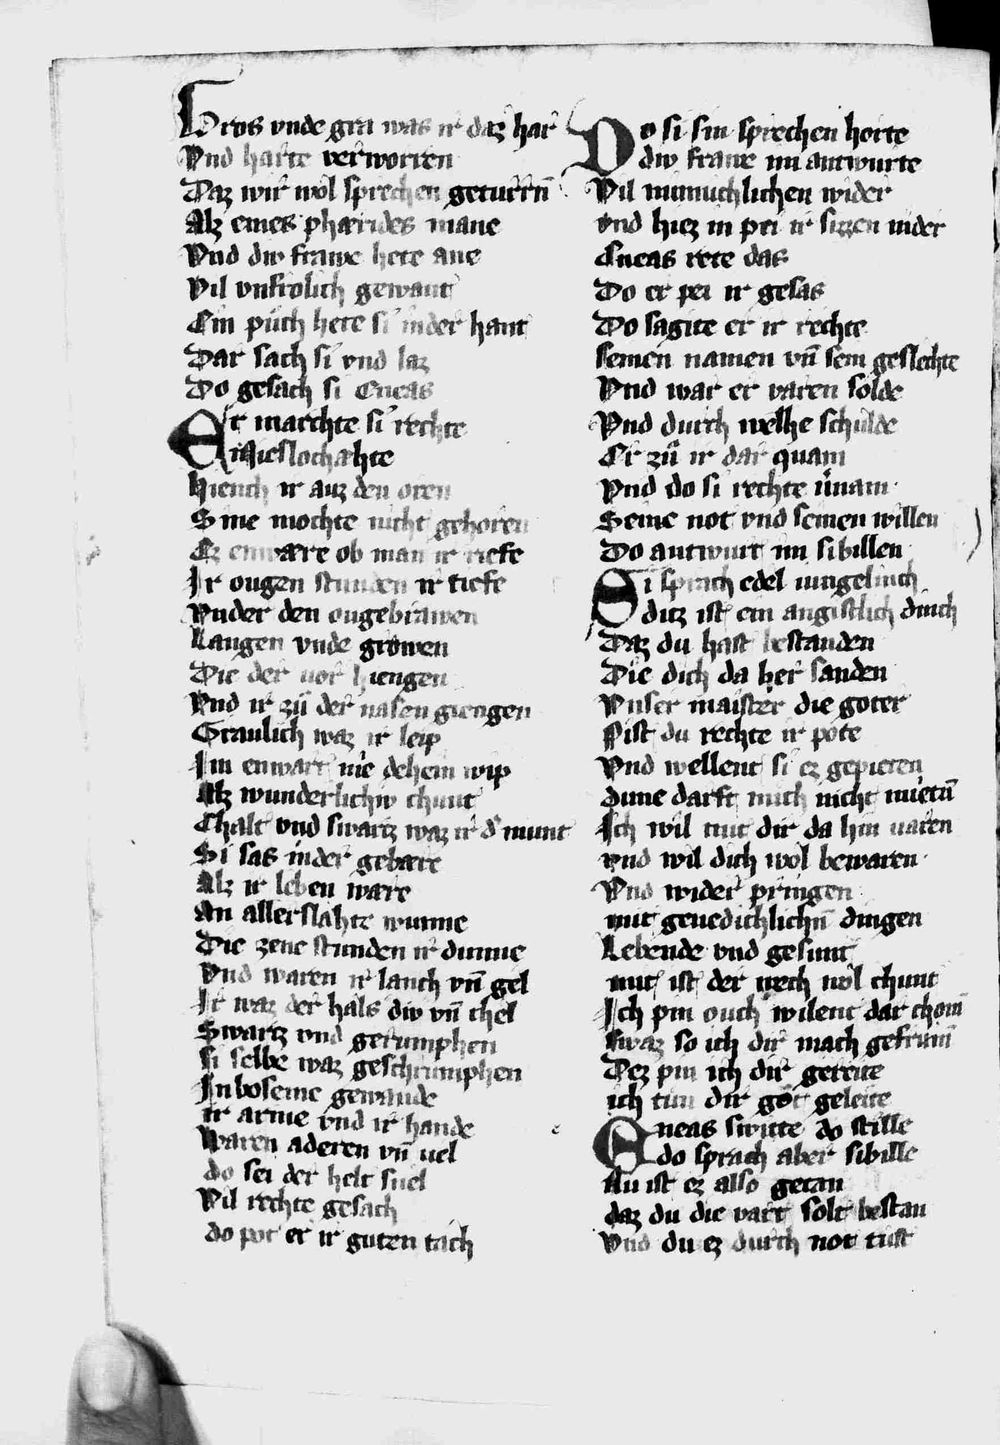 Gros vnde gra was ir daz har
Vnd harte verworren
Daz wir wol sprechen geturrn̄
Alz eines phærides mane
Vnd diw frawe hete ane
Vil vnfrolich gewant
Ein půch hete si inder hant
Dar sach si vnd laz
Do gesach si Eneas
Er marchte si rechte
Mieslochæhte
Hiench ir auz den oren
Sine mochte nicht gehoren
Ez enwære ob man ir riefe
Ir ougen stunden ir tiefe
Vnder den ougebrawen
Langen vnde growen
Die der vor hiengen
Vnd ir zů der nasen giengen
Graulich waz ir leip
Im enwart nie dehein wip
Alz wunderlichiw chunt
Chalt vnd swartz waz ir d' munt
Si sas inder gebære
Alz ir leben wære
An allerslahte wunne
Die zene stunden ir dunne
Vnd waren ir lanch vn̄ gel
Ir waz der hals diw vn̄ chel
Swartz vnd gerumphen
si selbe waz geschrumphen
In boseme gewande
ir arme vnd ir hande
Waren aderen vn̄ uel
do sei der helt snel
Vil rechte gesach
do pot er ir guten tach
Do si sin sprechen horte
diw frawe im antwurte
Vil minnichlichen wider
vnd hiez in pei ir sizzen nider
Eneas tete das
Do er pei ir gesas
Do sagite er ir rechte
seinen namen vn̄ sein geslechte
Vnd war er varen solde
Vnd durch welhe schulde
Er zů ir dar quam
Vnd do si rechte uͥnam
Seine not vnd seinen willen
Do antwurt im sibillen
Si sprach edel iungelinch
ditz ist ein angistlich dinch
Daz du hast bestanden
Die dich da her sanden
Vnser maister die goter
Pist du rechte ir pote
Vnd wellent si ez gepieten
dune darft mich nicht mietn̄
Ich wil mit dir da hin uaren
vnd wil dich wol bewaren
Vnd wider pringen
mit genedichlichn̄ dingen
Lebende vnd gesunt
mir ist der wech wol chunt
Ich pin ouch wilent dar chom̄
swaz so ich dir mach gefrum̄
Dez pin ich dir gereite
ich tun dir gůt geleite
Eneas switte do stille
do sprach aber sibille
Nu ist ez also getan
daz du die vart solt bestan
Vnd du ez durch not tust